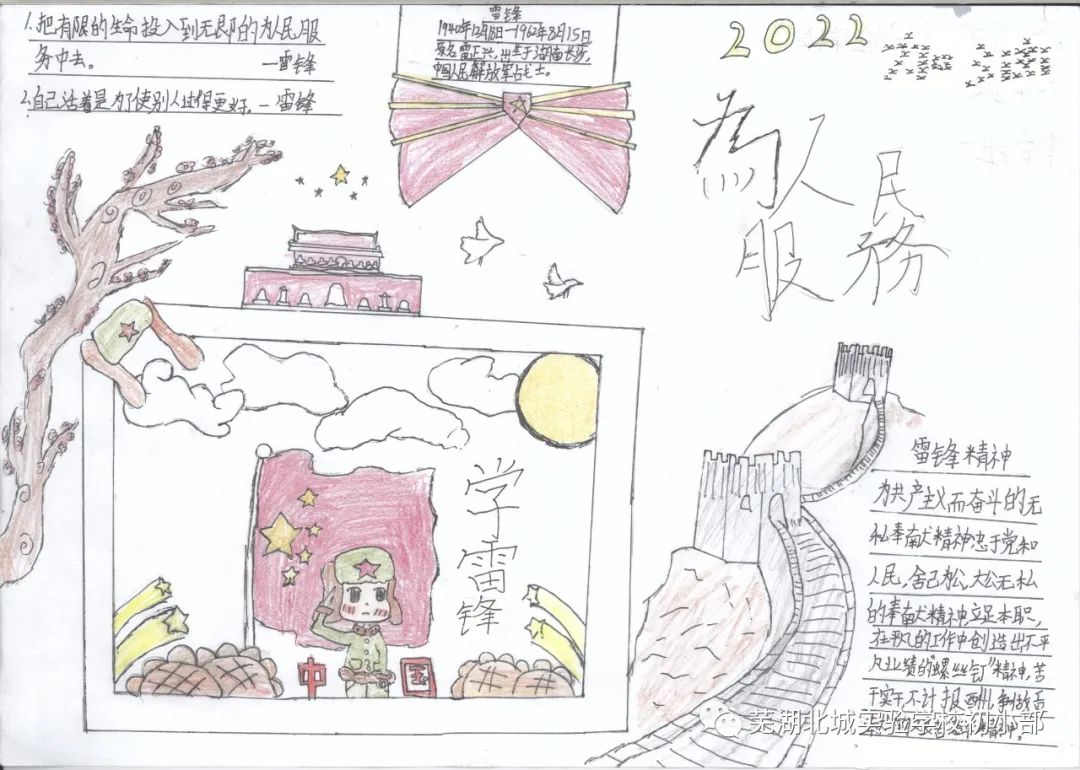 1.把有限的生命投入到无限的为人民服
务中去。 —雷锋
2.自己活着是为了使别人过得更好。—雷锋
雷锋
1940年12月18日—1962年8月15日
原名雷正兴,出生于湖南长沙,
中国人民解放军占战士。
2022
為人民
服務
学雷锋
中国
雷锋精神
为共产主义而奋斗的无
私奉献精神忠于党和
人民,舍己为公,大公无私
的奉献精神立足本职,
在平凡的工作中创造出不平
凡业绩的“螺丝钉”精神,苦
干实干不计报酬,争做
精神。
芜湖北城实验学校初小部